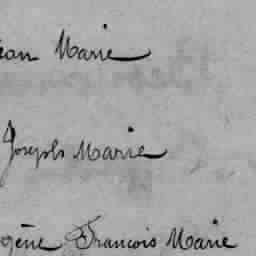 ean Marie
Joseph Marie
gène François Marie